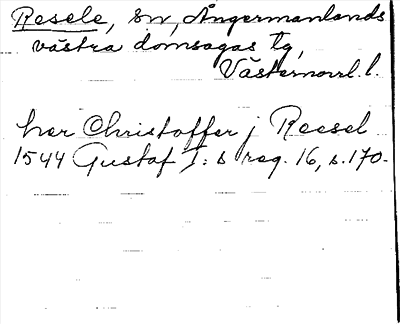 Resele, sn, Ångermanlands
västra domsagas tg,
Västernorrl. l.
her Christoffer j Reesel
1544 Gustaf I:s reg. 16, s. 170.